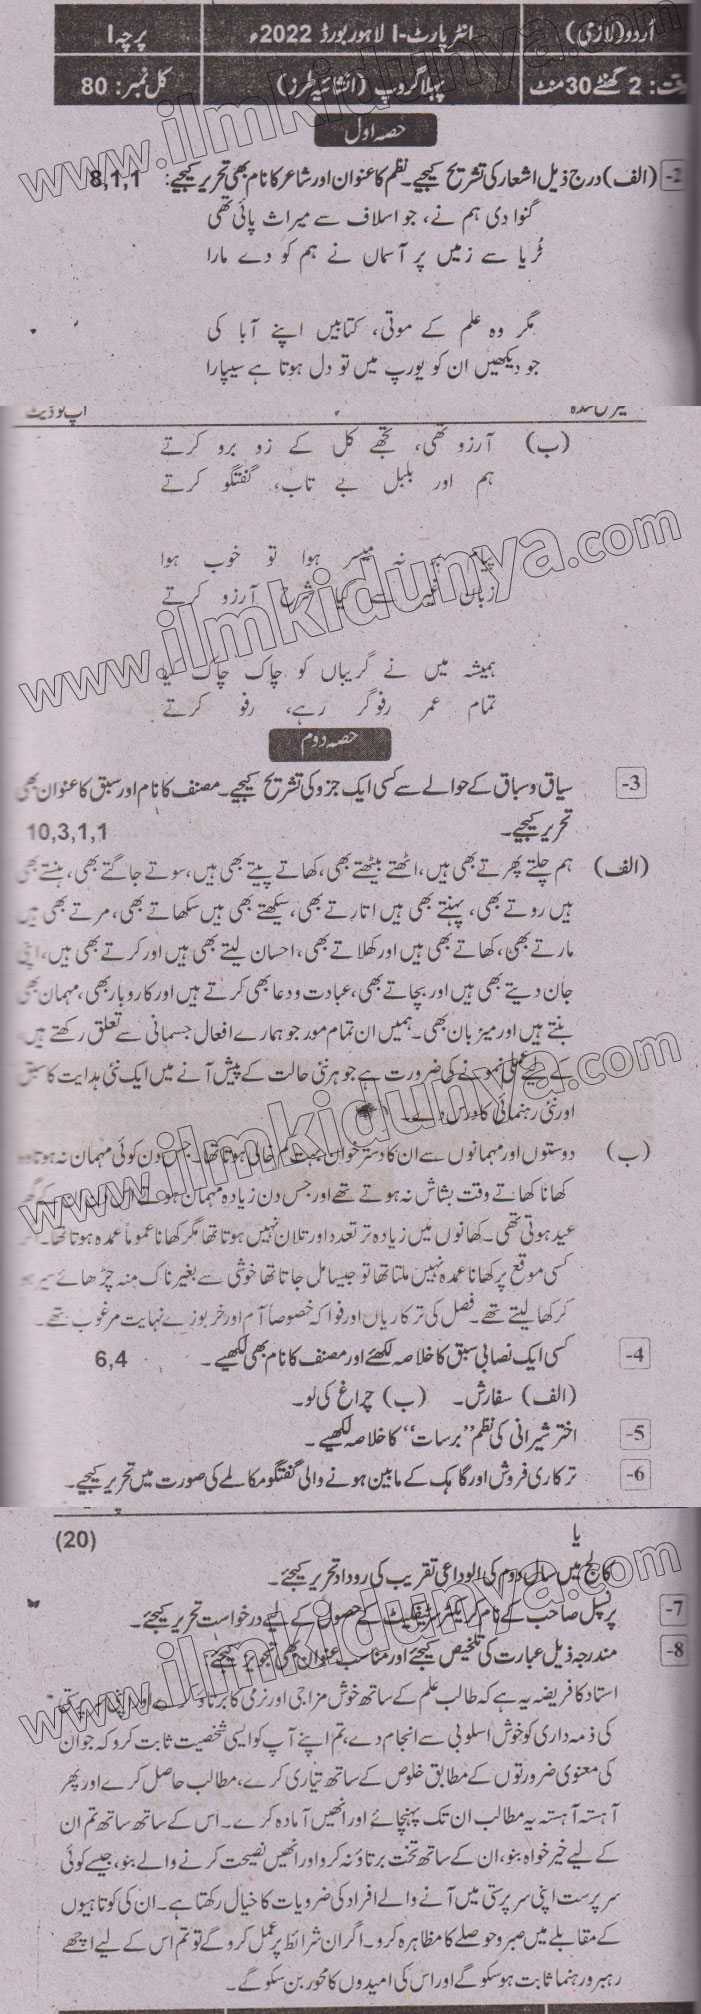 اُردو (لازمی) انٹر پارٹ-I لاہور بورڈ 2022ء پرچہ I
وقت: 2 گھنٹے 30 منٹ پہلا گروپ (انشائیہ طرز) کل نمبر: 80
حصہ اول
2- (الف) درج ذیل اشعار کی تشریح کیجیے۔ نظم کا عنوان اور شاعر کا نام بھی تحریر کیجیے: 8,1,1
گنوا دی ہم نے، جو اسلاف سے میراث پائی تھی
ثُریا سے زمیں پر آسماں نے ہم کو دے مارا
مگر وہ علم کے موتی، کتابیں اپنے آبا کی
جو دیکھیں ان کو یورپ میں تو دل ہوتا ہے سیپارا
اپ ٹو ڈیٹ
(ب) آرزو تھی، تجھے گل کے رو برو کرتے
ہم اور بلبل بے تاب، گفتگو کرتے
پیام بر نہ میسر ہوا تو خوب ہوا
زبان غیر سے کیا شرح آرزو کرتے
ہمیشہ میں نے گریباں کو چاک چاک کیا
تمام عمر رفوگر رہے، رفو کرتے
حصہ دوم
3- سیاق و سباق کے حوالے سے کسی ایک جزو کی تشریح کیجیے۔ مصنف کا نام اور سبق کا عنوان بھی
تحریر کیجیے۔ 10,3,1,1
(الف) ہم چلتے پھرتے بھی ہیں، اٹھتے بیٹھتے بھی، کھاتے پیتے بھی ہیں، سوتے جاگتے بھی، ہنستے بھی
ہیں روتے بھی، پہنتے بھی ہیں اتارتے بھی، سیکھتے بھی ہیں سکھاتے بھی، مرتے بھی ہیں
مارتے بھی، کھاتے بھی ہیں اور کھلاتے بھی، احسان لیتے بھی ہیں اور کرتے بھی ہیں، اپنی
جان دیتے بھی ہیں اور بچاتے بھی، عبادت و دعا بھی کرتے ہیں اور کاروبار بھی، مہمان بھی
بنتے ہیں اور میزبان بھی۔ ہمیں ان تمام مور جو ہمارے افعال جسمانی سے تعلق رکھتے ہیں،
کے لیے عملی نمونے کی ضرورت ہے جو ہر نئی حالت کے پیش آنے میں ایک نئی ہدایت کا سبق
اور نئی رہنمائی کا درس دے۔
(ب) دوستوں اور مہمانوں سے ان کا دسترخوان بہت کم خالی ہوتا تھا۔ جس دن کوئی مہمان نہ ہوتا وہ
کھانا کھاتے وقت بشاش نہ ہوتے تھے اور جس دن زیادہ مہمان ہوتے اس دن ان کے گھر
عید ہوتی تھی۔ کھانوں میں زیادہ تر تعدد اور تلان نہیں ہوتا تھا مگر کھانا عموماً عمدہ ہوتا تھا۔ اگر
کسی موقع پر کھانا عمدہ نہیں ملتا تھا تو جیسا مل جاتا تھا خوشی سے بغیر ناک منہ چڑھائے سیر ہو
کر کھا لیتے تھے۔ فصل کی ترکاریاں اور فواکہ خصوصاً آم اور خربوزے نہایت مرغوب تھے۔
4- کسی ایک نصابی سبق کا خلاصہ لکھئے اور مصنف کا نام بھی لکھیے۔ 6,4
(الف) سفارش۔ (ب) چراغ کی لو۔
5- اختر شیرانی کی نظم "برسات" کا خلاصہ لکھیے۔
6- ترکاری فروش اور گاہک کے مابین ہونے والی گفتگو مکالمے کی صورت میں تحریر کیجیے۔
یا (20)
کالج میں سال دوم کی الوداعی تقریب کی روداد تحریر کیجئے۔
7- پرنسپل صاحب کے نام کریکٹر سرٹیفکیٹ کے حصول کے لیے درخواست تحریر کیجئے۔
8- مندرجہ ذیل عبارت کی تلخیص کیجئے اور مناسب عنوان بھی تجویز کیجئے
استاد کا فریضہ یہ ہے کہ طالب علم کے ساتھ خوش مزاجی اور نرمی کا برتاؤ کرے اور اپنی سرپرستی
کی ذمہ داری کو خوش اسلوبی سے انجام دے، تم اپنے آپ کو ایسی شخصیت ثابت کرو کہ جو ان
کی معنوی ضرورتوں کے مطابق خلوص کے ساتھ تیاری کرے، مطالب حاصل کرے اور پھر
آہستہ آہستہ یہ مطالب ان تک پہنچائے اور انھیں آمادہ کرے۔ اس کے ساتھ ساتھ تم ان
کے لیے خیر خواہ بنو، ان کے ساتھ سخت برتاؤ نہ کرو اور انھیں نصیحت کرنے والے بنو، جیسے کوئی
سرپرست اپنی سرپرستی میں آنے والے افراد کی ضروریات کا خیال رکھتا ہے۔ ان کی کوتاہیوں
کے مقابلے میں صبر و حوصلے کا مظاہرہ کرو۔ اگر ان شرائط پر عمل کرو گے تو تم اس کے لیے اچھے
رہبر و رہنما ثابت ہو سکو گے اور اس کی امیدوں کا محور بن سکو گے۔
www.ilmkidunya.com
www.ilmkidunya.com
www.ilmkidunya.com
www.ilmkidunya.com